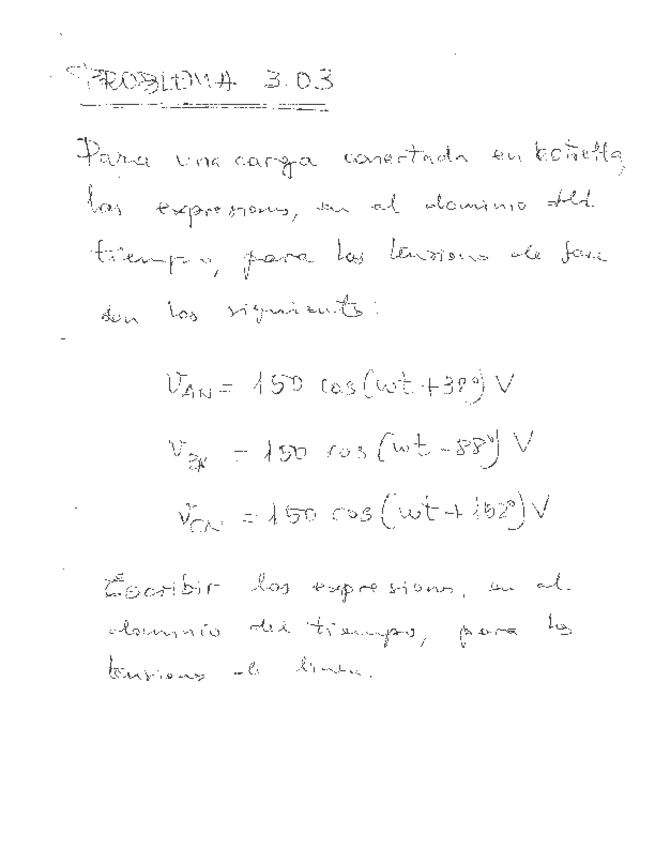 PROBLEMA 3.03
Para una carga conectada en estrella,
las expresiones, en el dominio del
tiempo, para las tensiones de fase
son las siguientes:
V_AN = 150 cos(wt+38º) V
V_BN = 150 cos(wt-88º) V
V_CN = 150 cos(wt+152º) V
Escribir las expresiones, en el
dominio del tiempo, para las
tensiones de linea.